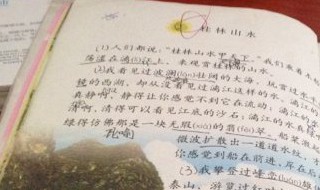 桂林山水
(1)人们都说:“桂林山水甲天下。”我们乘着木船
荡漾在漓江上,来观赏桂林的山水。
(2)我看见过波澜壮阔的大海,玩赏过水平如
镜的西湖,却从没看见过漓江这样的水。漓江的
真静啊,静得让你感觉不到它在流动;漓江的
清啊,清得可以看见江底的沙石;漓江的水真
绿得仿佛那是一块无瑕(xiá)的翡(fěi)翠。船桨激起
微波扩散出一道道水纹,才
你感觉到船在前进,岸在后
(3)我攀登过峰峦
泰山,游览过